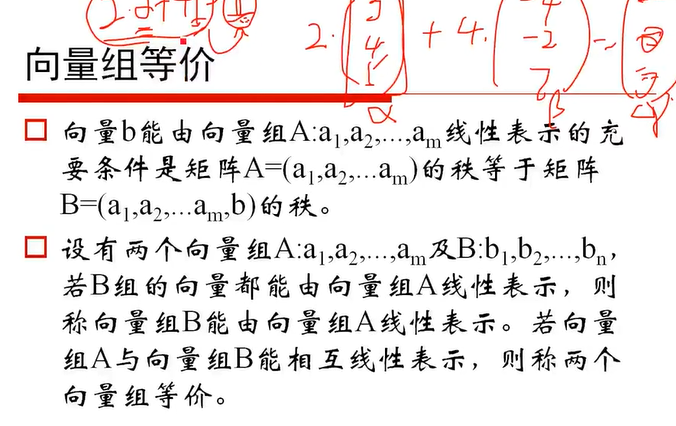 2·
2· 4 + 4· -2 =
α β
向量组等价
向量b能由向量组A:a1,a2,...,am线性表示的充
要条件是矩阵A=(a1,a2,...am)的秩等于矩阵
B=(a1,a2,...am,b)的秩。
设有两个向量组A:a1,a2,...,am及B:b1,b2,...,bn,
若B组的向量都能由向量组A线性表示，则
称向量组B能由向量组A线性表示。若向量
组A与向量组B能相互线性表示，则称两个
向量组等价。